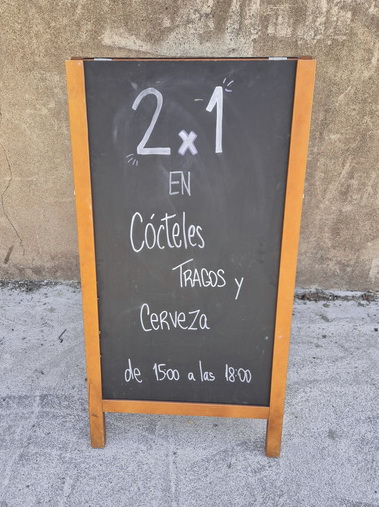 2x1
EN
Cócteles
TRAGOS y
Cerveza
de 15:00 a las 18:00